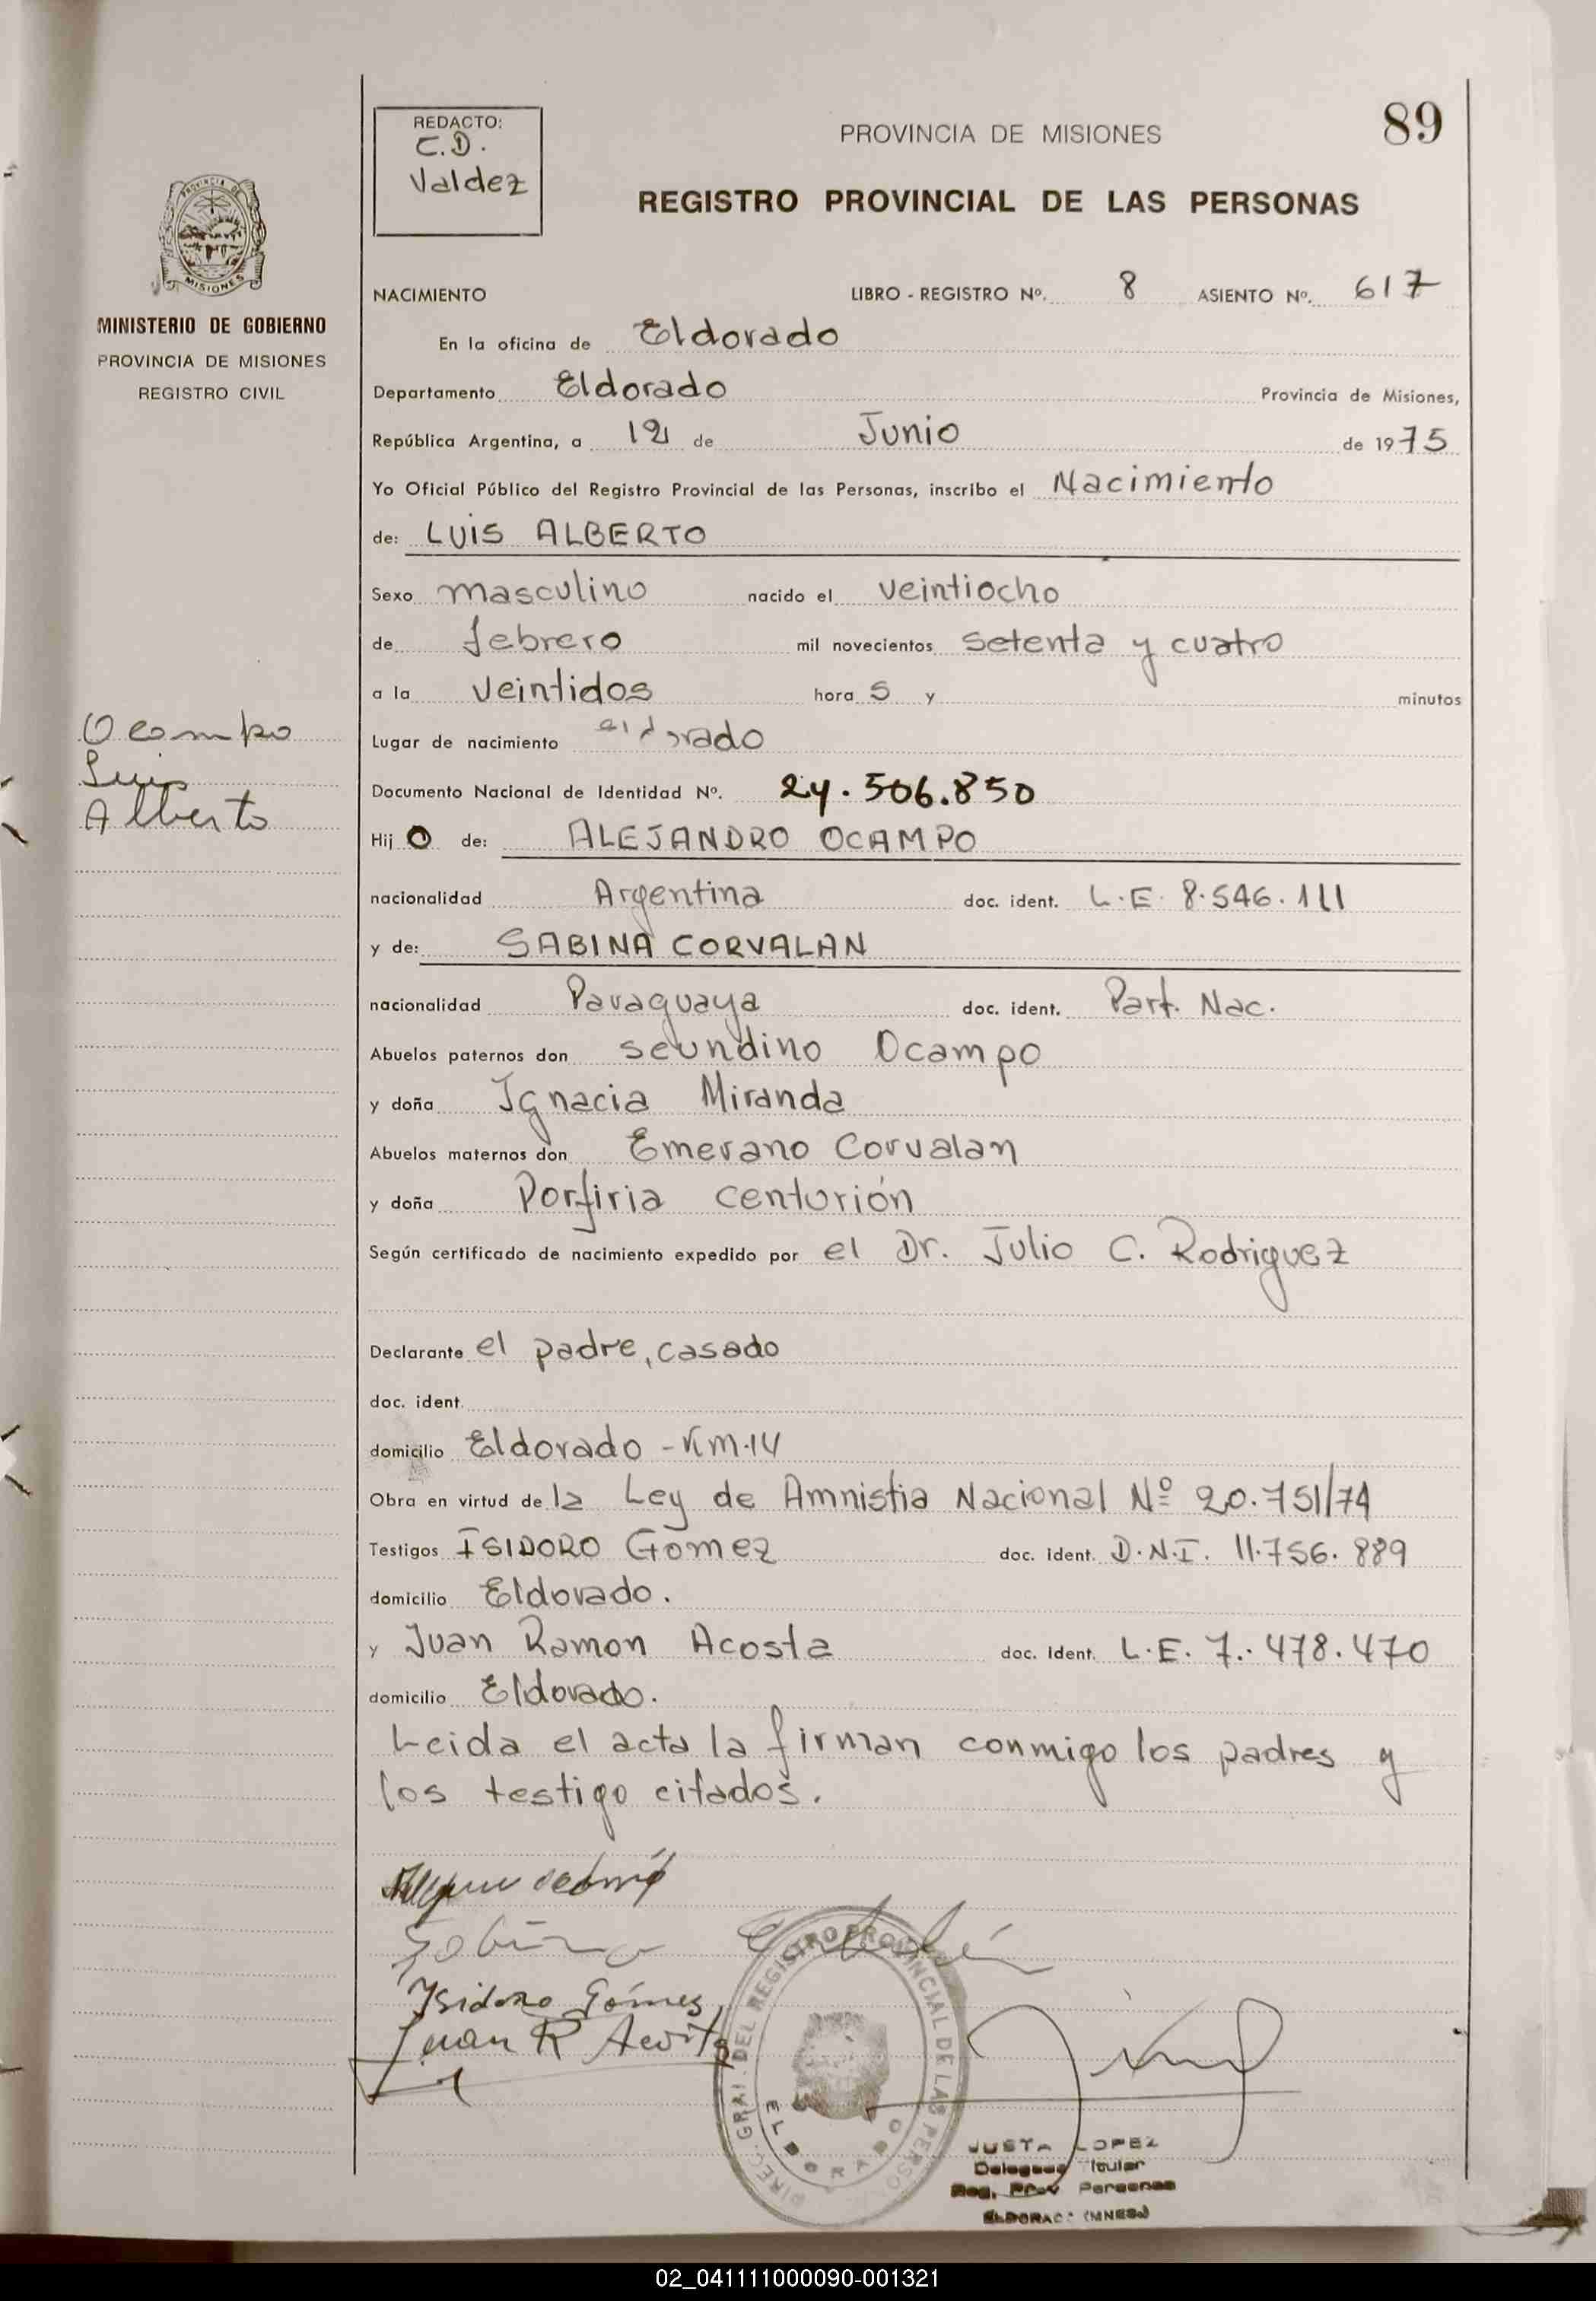 89
REDACTO:
C.D.
Valdez
PROVINCIA DE MISIONES
REGISTRO PROVINCIAL DE LAS PERSONAS
PROVINCIA DE
MISIONES
MINISTERIO DE GOBIERNO
PROVINCIA DE MISIONES
REGISTRO CIVIL
NACIMIENTO LIBRO - REGISTRO Nº. 8 ASIENTO Nº. 617
En la oficina de Eldorado
Departamento Eldorado Provincia de Misiones,
República Argentina, a 12 de Junio de 1975
Yo Oficial Público del Registro Provincial de las Personas, inscribo el Nacimiento
de: LUIS ALBERTO
Sexo masculino nacido el veintiocho
de febrero mil novecientos setenta y cuatro
a la veintidos hora s y minutos
Ocampo
Luis
Alberto
Lugar de nacimiento eldorado
Documento Nacional de Identidad Nº. 24.506.850
Hij o de: ALEJANDRO OCAMPO
nacionalidad Argentina doc. ident. L.E. 8.546.111
y de: SABINA CORVALAN
nacionalidad Paraguaya doc. ident. Part. Nac.
Abuelos paternos don seundino Ocampo
y doña Ignacia Miranda
Abuelos maternos don Emerano Corvalan
y doña Porfiria centurión
Según certificado de nacimiento expedido por el Dr. Julio C. Rodriguez
Declarante el padre, casado
doc. ident.
domicilio Eldorado - Km.14
Obra en virtud de la Ley de Amnistia Nacional Nº 20.751/74
Testigos ISIDORO Gomez doc. ident. D.N.I. 11.756.889
domicilio Eldorado.
y Juan Ramon Acosta doc. ident. L.E. 7.478.470
domicilio Eldorado.
Leida el acta la firman conmigo los padres y
los testigo citados.
Sabina
Isidoro Gómes
Juan R
DIREC. GRAL. DEL REGISTRO PROVINCIAL DE LAS PERSO
ELDORADO
JUSTA LOPEZ
Titular
Reg. Prov Personas
(MNES.)
02_041111000090-001321